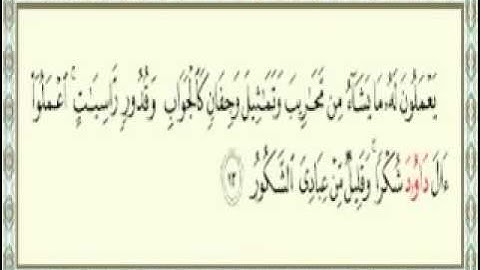 يَعْمَلُونَ لَهُۥ مَا يَشَآءُ مِن مَّحَٰرِيبَ وَتَمَٰثِيلَ وَجِفَانٍ كَٱلْجَوَابِ وَقُدُورٍ رَّاسِيَٰتٍ ۚ ٱعْمَلُوٓا۟
ءَالَ دَاوُۥدَ شُكْرًا ۚ وَقَلِيلٌ مِّنْ عِبَادِىَ ٱلشَّكُورُ ١٣